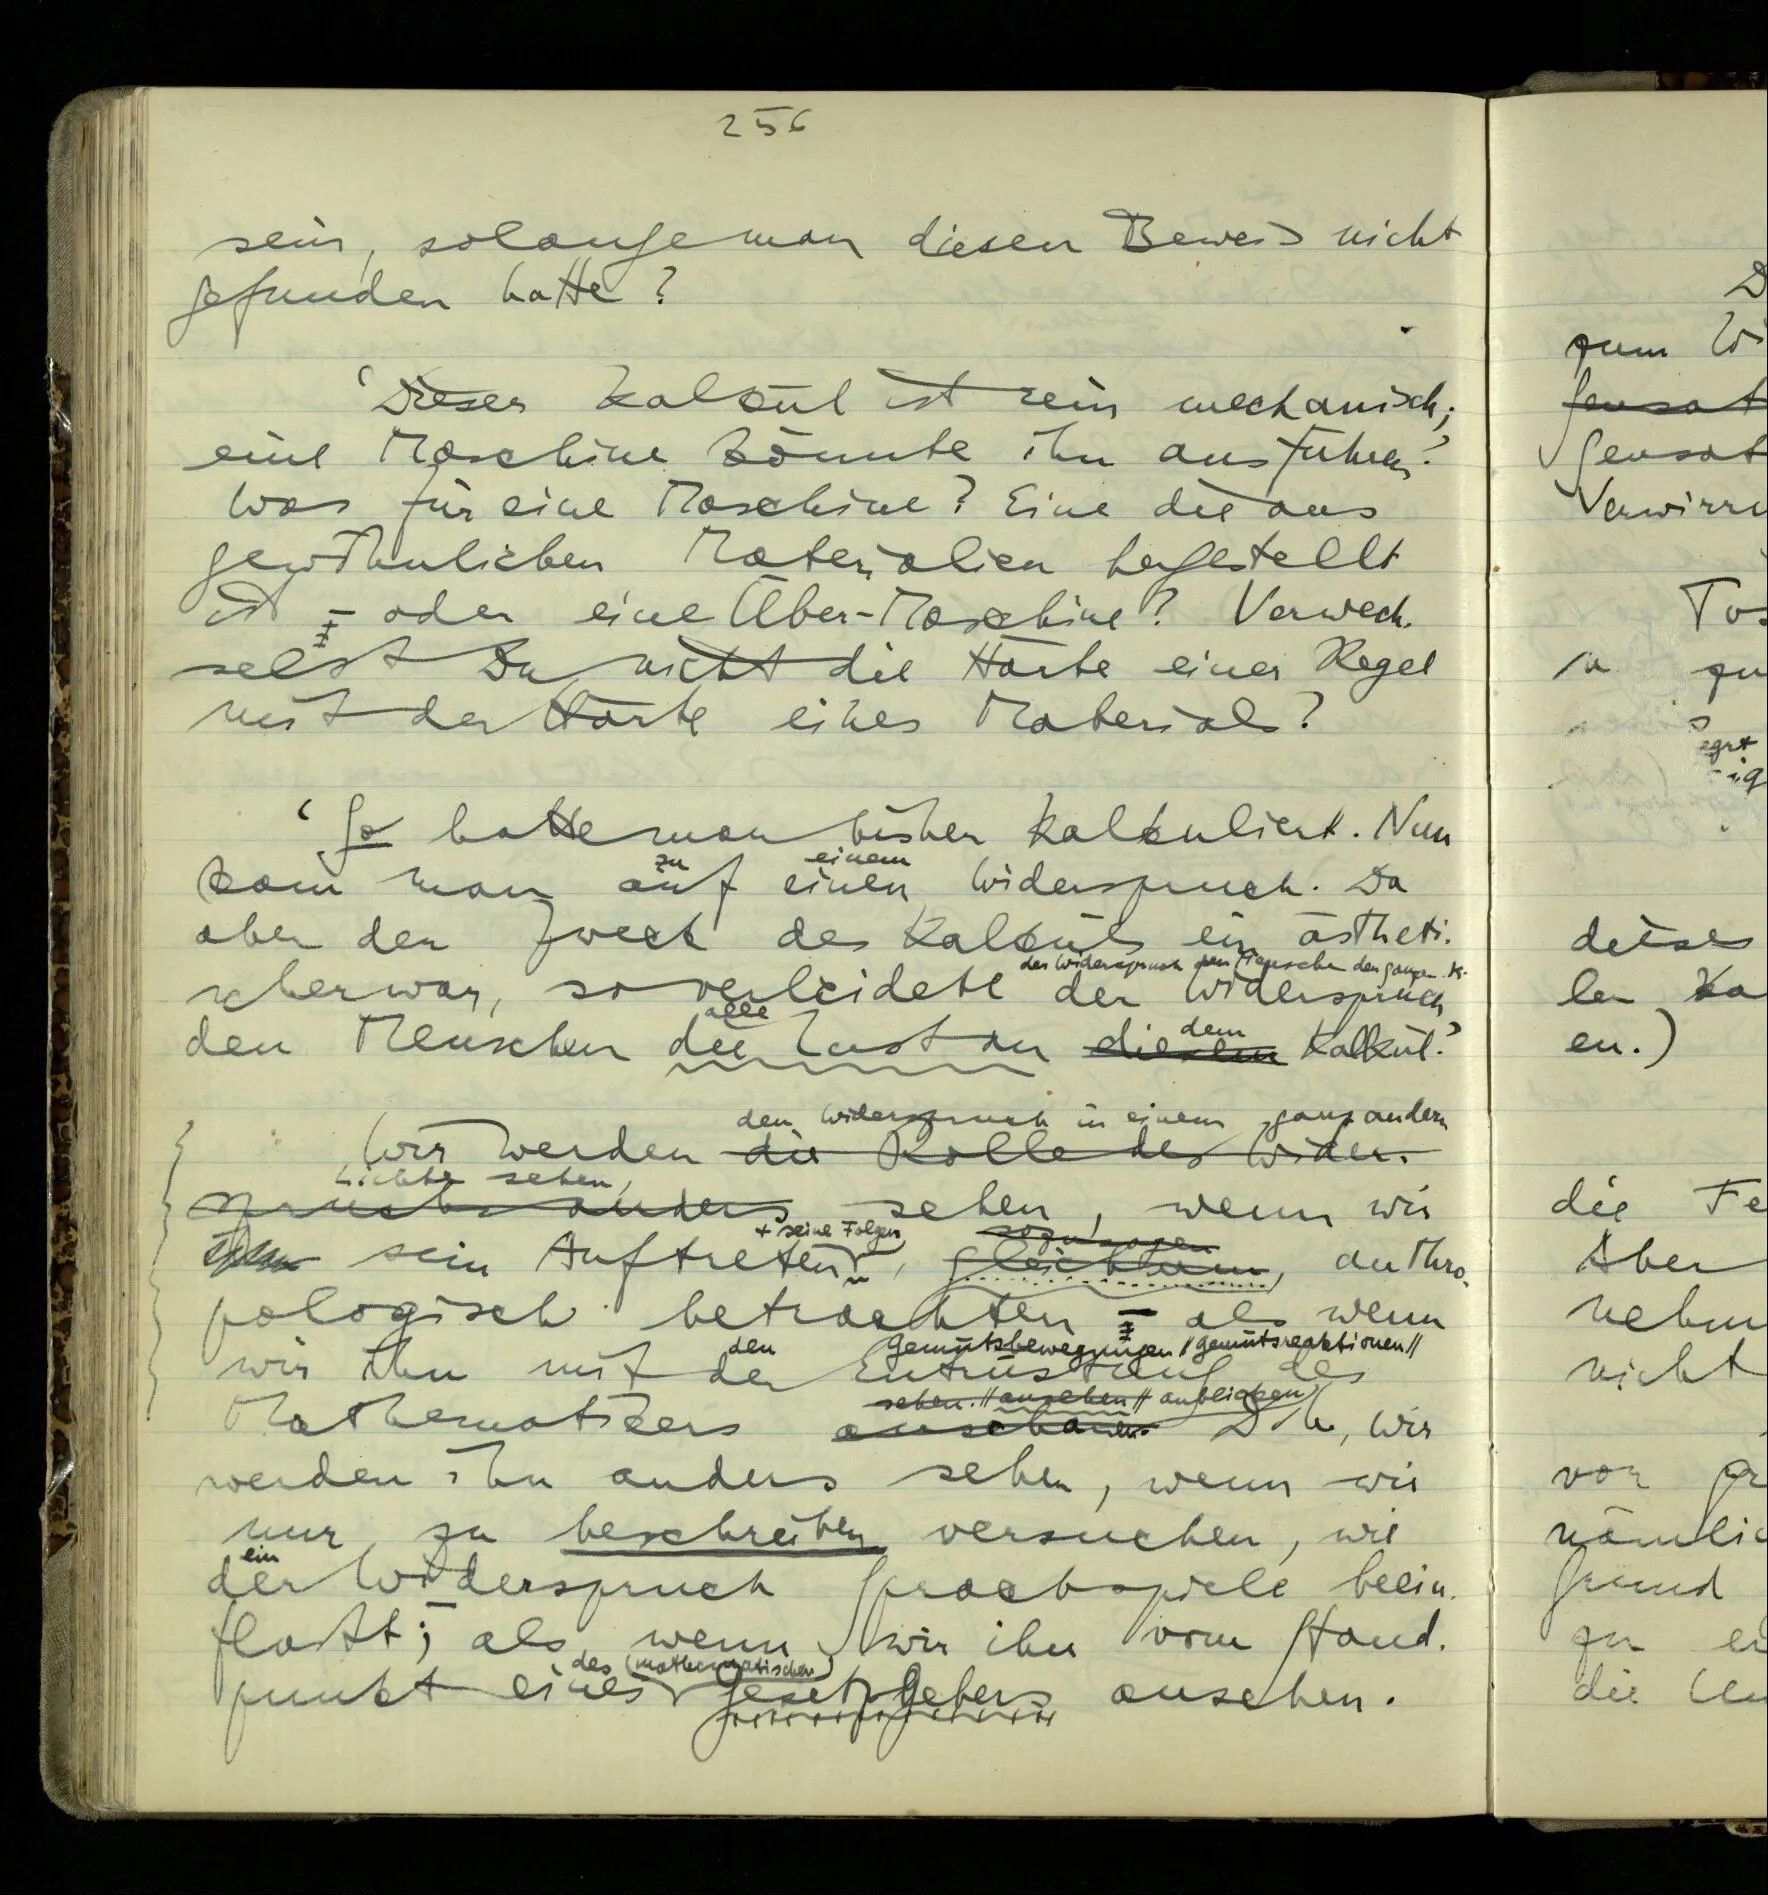 256
sein, solange man diesen Beweis nicht
gefunden hatte?
'Dieser Kalkül ist rein mechanisch;
eine Maschine könnte ihn ausführen.'
Was für eine Maschine? Eine die aus
gewöhnlichen Materialien hergestellt
ist – oder eine Über-Maschine? Verwech-
selst Du nicht die Härte einer Regel
mit der Härte eines Materials?
'So hatte man bisher kalkuliert. Nun
zu einem
kam man auf einen Widerspruch. Da
aber der Zweck des Kalküls ein ästheti-
der Widerspruch den Menschen den ganzen K.
scher war, so verleidete der Widerspruch
alle dem
den Menschen die Lust an diesem Kalkül.'
den Widerspruch in einem ganz andern
Wir werden die Rolle des Wider-
Lichte sehen,
spruchs anders sehen, wenn wir
+ seine Folgen sozusagen
sein Auftreten, gleichsam, anthro-
pologisch betrachten – als wenn
den Gemütsbewegungen // Gemütsreaktionen //
wir ihn mit der Entrüstung des
sehen. // ansehen // anblicken
Mathematikers anschauen. D.h., wir
werden ihn anders sehen, wenn wir
nur zu beschreiben versuchen, wie
ein
der Widerspruch Sprachspiele beein-
flußt; als wenn wir ihn vom Stand-
des (mathematischen)
punkt eines Gesetzgebers ansehen.
zum
Gensat
Verwirru
dieses
en.)
die Fe
Aber
nehm
nicht
vor
nämlic
Grund
zu
die